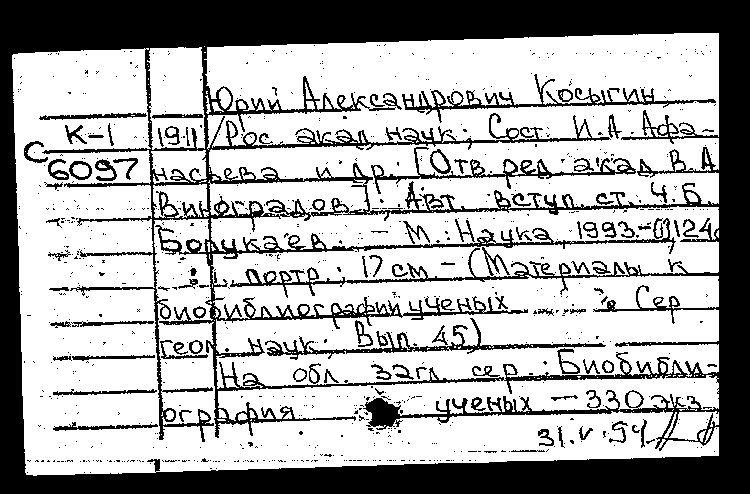 Юрий Александрович Косыгин
К-1 1911 /Рос. акад. наук; Сост. И.А. Афа-
С 6097 насьева и др. [Отв. ред. акад. В.А.
Виноградов]; Авт. вступ. ст. Ч.Б.
Борукаев. - М.: Наука, 1993.-(1),124с
: 1 л. портр.; 17 см. - (Материалы к
биобиблиографии ученых Сер
геол. наук; Вып. 45)
На обл. загл. сер.: Биобибли-
ография ученых - 330 экз
31.V.94